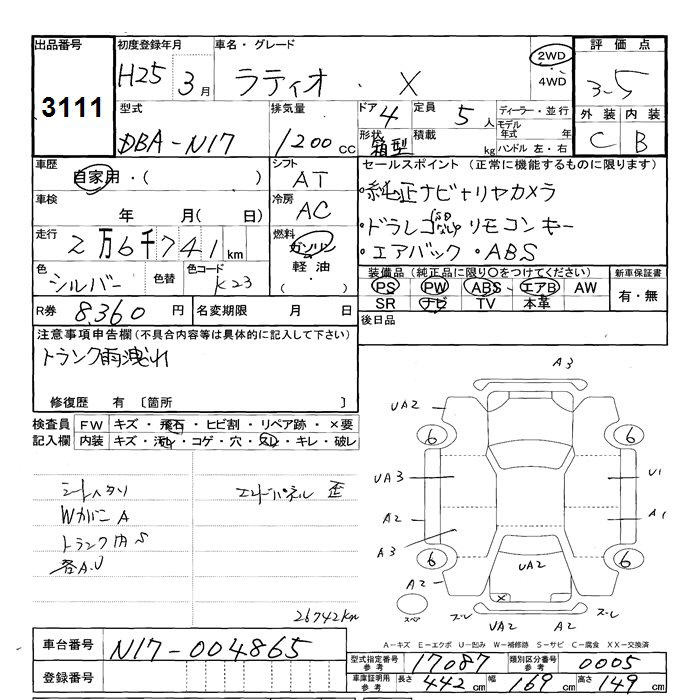 出品番号 初度登録年月 車名・グレード 評価点
3111 H25 3月 ラティオ . X 2WD 4WD 3.5
型式 排気量 ドア 4 定員 5人 ディーラー・並行 外装 内装
DBA-N17 1200cc 形状 箱型 積載 kg モデル年式 年 ハンドル 左・右 C B
車歴 自家用・( ) シフト AT セールスポイント (正常に機能するものに限ります)
車検 年 月( 日) 冷房 AC ・純正ナビ+リヤカメラ
走行 2万6千741km 燃料 ガソリン 軽油・( ) ・ドラレコ リモコンキー
・エアバック・ABS
色 シルバー 色替 色コード K23
装備品(純正品に限り○をつけてください) 新車保証書
PS PW ABS エアB AW 有・無
SR ナビ TV 本革
R券 8,360円 名変期限 月 日 後日品
注意事項申告欄(不具合内容等は具体的に記入して下さい)
トランク雨洩れ
修復歴 有 〔箇所 〕
検査員 FW キズ・飛石・ヒビ割・リペア跡・×要
記入欄 内装 キズ・汚レ・コゲ・穴・スレ・キレ・破レ
A3
UA2
6 6
シートスタリ エンドパネル 歪 UA3 U1
Wカバー A A2 A1
トランク内 S A3
各A.U 6 6
UA2
A2 ×
26742km スペア スーレ スーレ
A-キズ E-エクボ U-凹み W-補修跡 S-サビ C-腐食 XX-交換済
車台番号 N17-004865
型式指定番号 参考 17087 類別区分番号 参考 0005
登録番号 車庫証明用 参考 長さ 442cm 幅 169cm 高さ 149cm